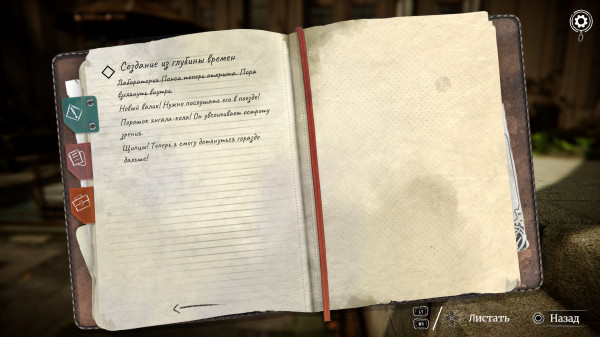 Создание из глубины времен
Лаборатория Понса теперь открыта. Пора
взглянуть внутри.
Новый валик! Нужно послушать его в поезде!
Порошок янгала-кола! Он увеличивает остроту
зрения.
Щипцы! Теперь я смогу дотянуться гораздо
дальше!
L1
R1
Листать
Назад